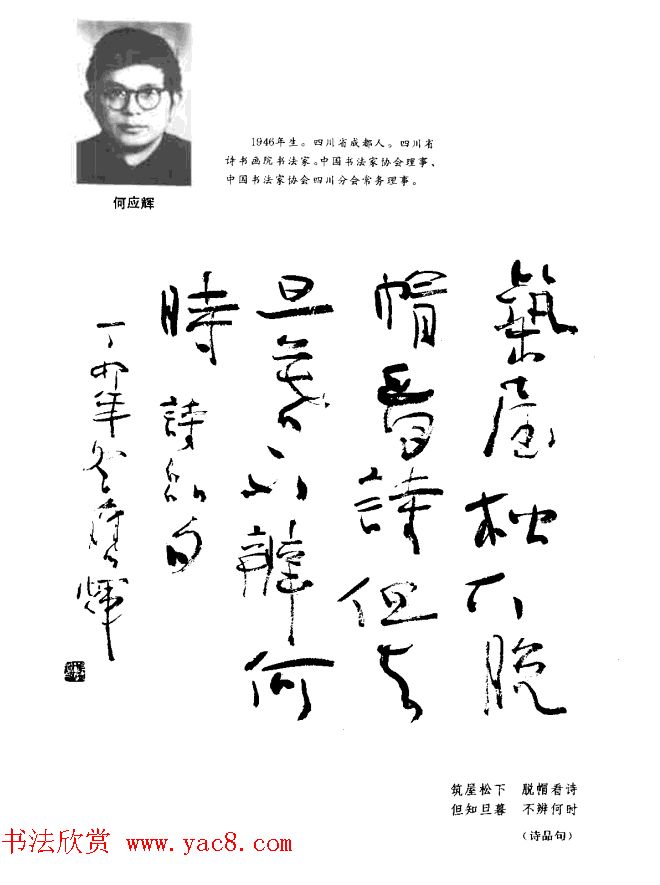 何应辉
1946年生。四川省成都人。四川省
诗书画院书法家。中国书法家协会理事、
中国书法家协会四川分会常务理事。
築屋松下脱
帽看詩但知
旦暮不辨何
時 詩品句
丁卯年 何應輝
筑屋松下 脱帽看诗
但知旦暮 不辨何时
（诗品句）
书法欣赏 www.yac8.com